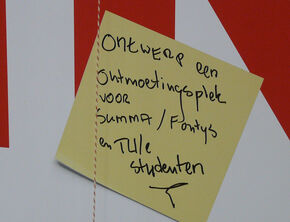 ONTWERP een
Ontmoetingsplek
VOOR
SUMMA / Fontys
en TU/e
studenten